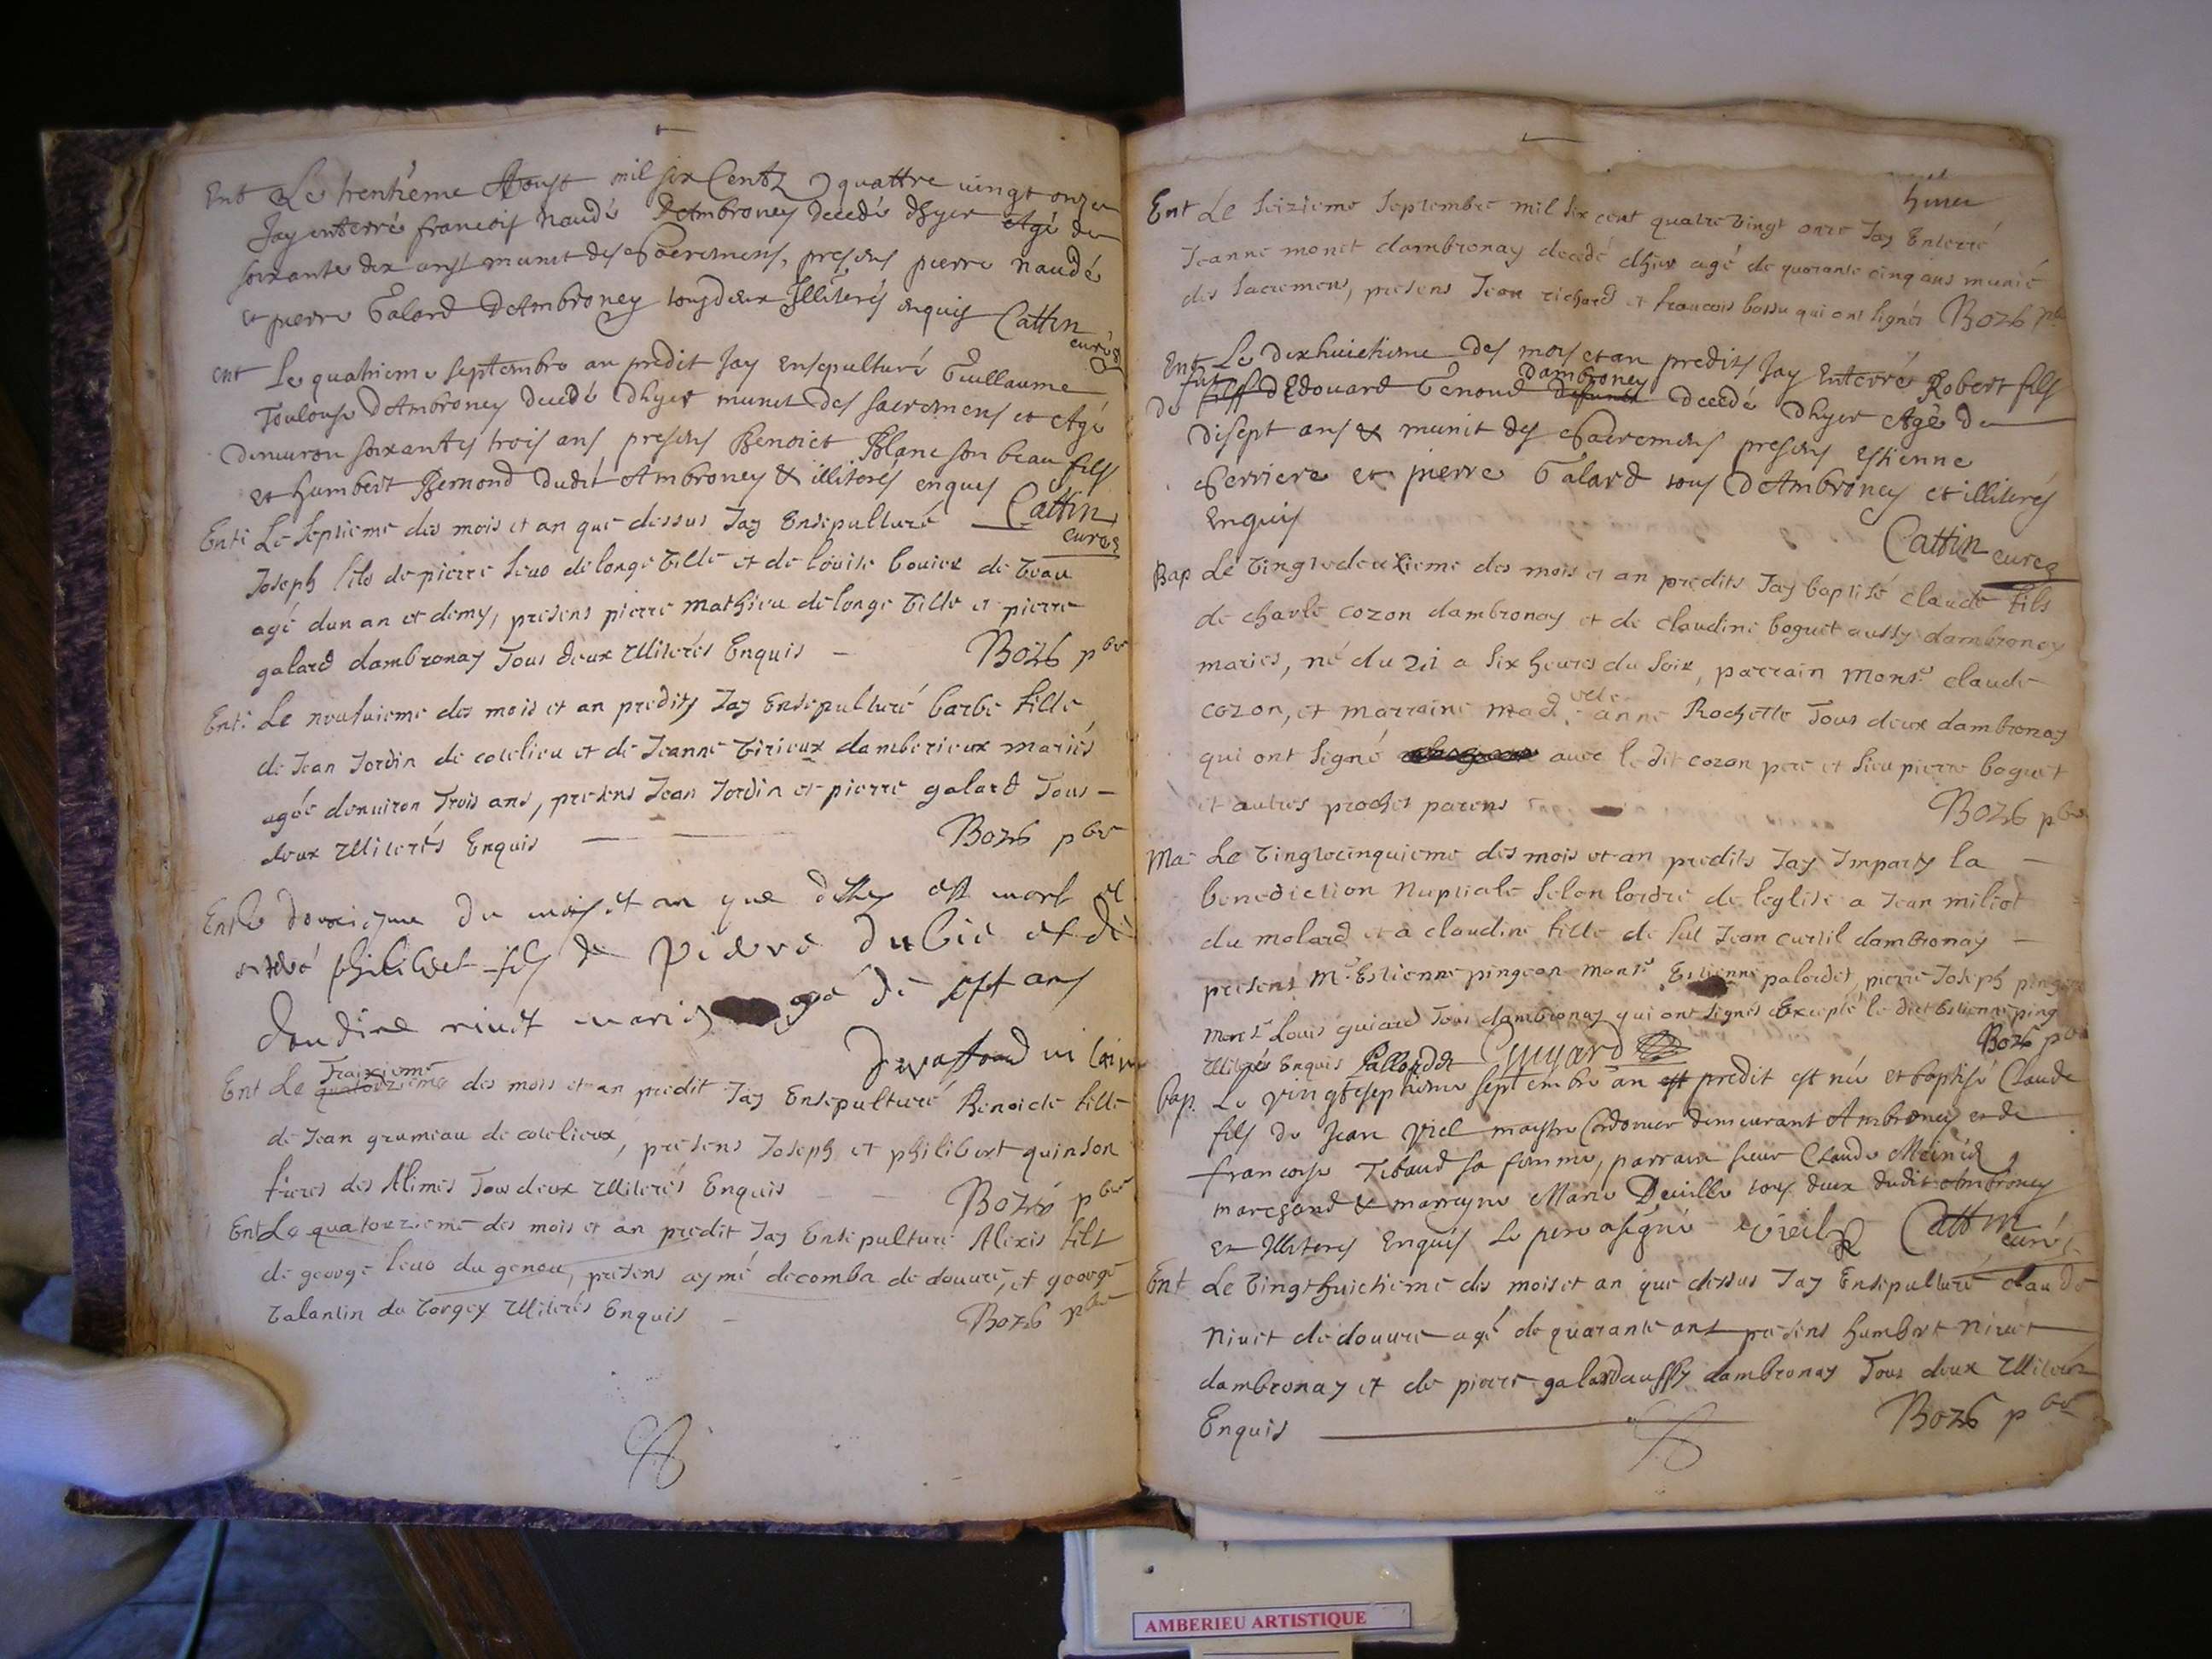 Ent Le trentième Aoust mil six Centz & quattre vingt onze
Jay enterré francois naudé DAmbroney decedé dhyer Agé de
soixante dix ans munit des Sacremens, presens pierre naudé
et pierre Galard DAmbroney tous deux Illiterés enquis Cattin
curé
ent Le quatrieme septembre an predit Jay ensepulturé Guillaume
Toulouse DAmbroney decedé Dhyer munit des sacremens et Agé
denviron soixantes trois ans presens Benoict Blanc son beau fils
et humbert Bernond dudit Ambroney & illiterés enquis Cattin
curé
Ent: Le septieme des mois et an que dessus Jay Ensepulturé
Joseph fils de pierre leuo de longe ville et de louise bouier de Veau
agé dun an et demy, presens pierre mathieu de longe ville et pierre
galard dambronay Tous deux illiterés Enquis — Bozó pbre
Ent: Le neufuieme des mois et an predits Jay Ensepulturé barbe fille
de Jean Jordin de cotelieu et de Jeanne Virieux damberieux mariés
agée denuiron Trois ans, presens Jean Jordin et pierre galard Tous —
deux illiterés Enquis — Bozó pbre
Ent le douzieme du mois et an que dessus est mort et
enterré philibert fils de pierre dubié et de
claudine nivet mariés agé de sept ans
Ent Le Traizieme
quatorzieme des mois et an predit Jay Ensepulturé Benoicte fille
de Jean grumeau de cotelieux, presens Joseph et philibert quinson
freres des Alimes Tous deux illiterés Enquis — Bozó pbre
Ent Le quatorzieme des mois et an predit Jay Ensepulturé Alexis fils
de george leuo du genou, presens aymé decomba de douure, et george
Valantin du Vorgey illiterés Enquis — Bozó pbre
hiuer
Ent Le Seizieme Septembre mil six cent quatre Vingt onze Jay Enterré
Jeanne monet dambronay decedé dhier agé de quarante cinq ans munie
des Sacremens, presens Jean richard et francois bossu qui ont signés Bozó pbre
Ent Le dixhuictieme des mois et an predits Jay Enterré Robert fils
de fut fils dEdouard Genoud Dambroney defunct decedé Dhyer Agé de
disept ans & munit des Sacremens presens estienne
Perriere et pierre Galard tous DAmbroney et illiterés
Enquis
Cattin curé
Bap Le Vingtedeuxieme des mois et an predits Jay baptisé claude fils
de charle cozon dambronay et de claudine boguet aussy dambronay
mariés, né du 21 a six heures du soir, parrain Monsr claude
cozon, et marraine mad elle anne Rochette Tous deux dambronay
qui ont signé avec le dit cozon pere et sieu pierre boguet
et autres proches parens Bozó pbre
Ma: Le Vingtecinquieme des mois et an predits Jay Imparty la —
benediction Nuptiale selon lordre de leglise a Jean miliot
du molard et a claudine fille de fut Jean curtil dambronay —
presens Mr Estienne pingeon monsr Estienne palordet, pierre Joseph pingeon
monsr Louis guiard Tous dambronay qui ont signés Excepté le dict Estienne ping
illiterés Enquis Pallordet Guyard Bozó pbre
bap. Le vingtseptieme septembre an est predit est née et baptisé Claude
fils de Jean Viel maystre Cordonier demeurant Ambroney et de
francoise Tibaud sa femme, parrain sieur Claude Meinier
marchand & marrayne Marie Deville tous deux dudit Ambroney
et Illiteres enquis Le pere a signé vieil Cattin
curé
Ent Le Vingthuictieme des mois et an que dessus Jay Ensepulturé claude
Niuet de douure agé de quarante ans presens humbert niuet
dambronay et de pierre galard aussy dambronay Tous deux illiterés
Enquis — Bozó pbre
AMBERIEU ARTISTIQUE